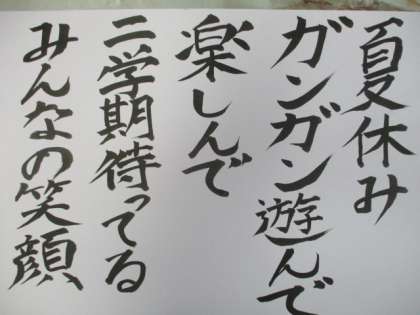 夏休み
ガンガン遊んで
楽しんで
二学期待ってる
みんなの笑顔